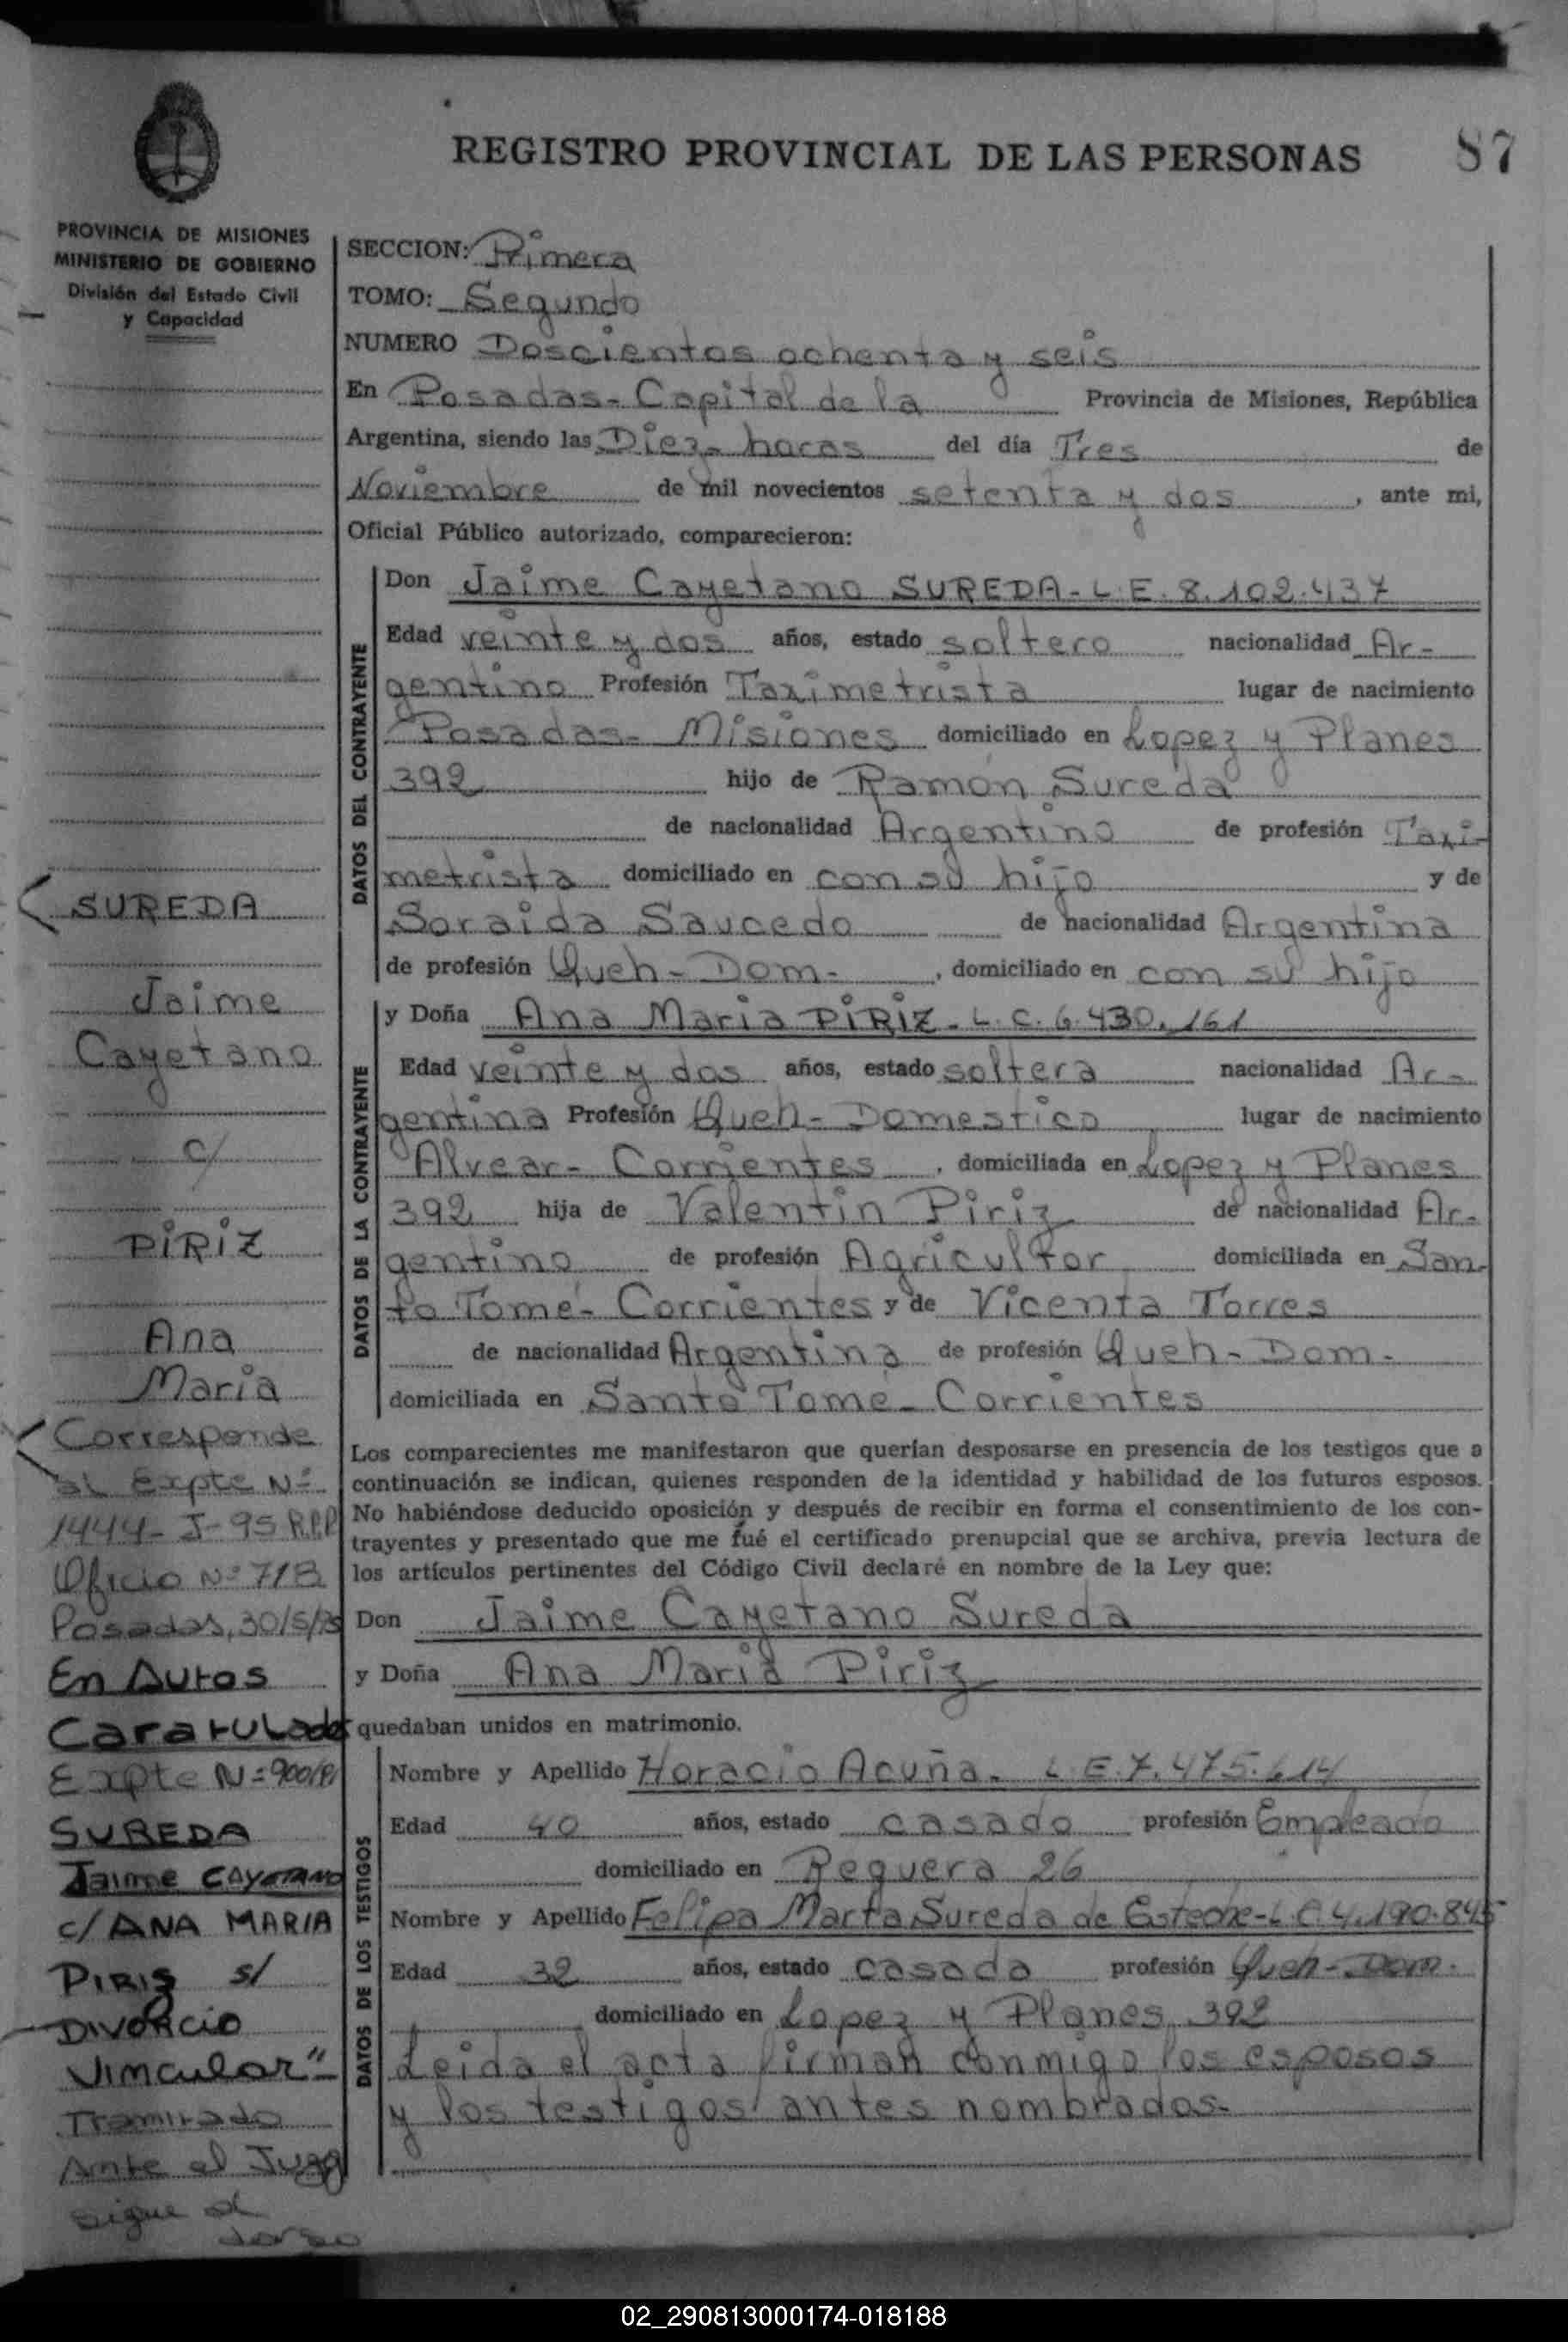 REGISTRO PROVINCIAL DE LAS PERSONAS
87
PROVINCIA DE MISIONES
MINISTERIO DE GOBIERNO
División del Estado Civil
y Capacidad
SECCION: Primera
TOMO: Segundo
NUMERO Doscientos ochenta y seis
En Posadas- Capital de la Provincia de Misiones, República
Argentina, siendo las Diez- horas del día Tres de
Noviembre de mil novecientos setenta y dos, ante mi,
Oficial Público autorizado, comparecieron:
DATOS DEL CONTRAYENTE
Don Jaime Cayetano SUREDA- L.E. 8.102.437
Edad veinte y dos años, estado soltero nacionalidad Ar-
gentino Profesión Taximetrista lugar de nacimiento
Posadas- Misiones domiciliado en Lopez y Planes
392 hijo de Ramón Sureda
de nacionalidad Argentino de profesión Taxi-
metrista domiciliado en con su hijo y de
Soraida Saucedo de nacionalidad Argentina
de profesión Queh- Dom-, domiciliado en con su hijo
DATOS DE LA CONTRAYENTE
y Doña Ana Maria PIRIZ- L.C. 6.430.161
Edad veinte y dos años, estado soltera nacionalidad Ar-
gentina Profesión Queh- Domestico lugar de nacimiento
Alvear- Corrientes, domiciliada en Lopez y Planes
392 hija de Valentin Piriz de nacionalidad Ar-
gentino de profesión Agricultor domiciliada en San-
to Tomé- Corrientes y de Vicenta Torres
de nacionalidad Argentina de profesión Queh- Dom-
domiciliada en Santo Tomé- Corrientes
Los comparecientes me manifestaron que querían desposarse en presencia de los testigos que a
continuación se indican, quienes responden de la identidad y habilidad de los futuros esposos.
No habiéndose deducido oposición y después de recibir en forma el consentimiento de los con-
trayentes y presentado que me fué el certificado prenupcial que se archiva, previa lectura de
los artículos pertinentes del Código Civil declaré en nombre de la Ley que:
Don Jaime Cayetano Sureda
y Doña Ana Maria Piriz
quedaban unidos en matrimonio.
DATOS DE LOS TESTIGOS
Nombre y Apellido Horacio Acuña- L.E. 7.475.614
Edad 40 años, estado casado profesión Empleado
domiciliado en Reguera 26
Nombre y Apellido Felipa Marta Sureda de Esteche- L.C. 4.190.845
Edad 32 años, estado casada profesión Queh- Dom-
domiciliado en Lopez y Planes 392
Leida el acta firman conmigo los esposos
y los testigos antes nombrados-
SUREDA
Jaime
Cayetano
c/
PIRIZ
Ana
Maria
Corresponde
al Expte Nº
1444- J- 95 R.P.P
Oficio Nº 718
Posadas, 30/5/95
En Autos
Caratulados
Expte Nº 900/
SUREDA
Jaime CAYETANO
c/ ANA MARIA
PIRIS s/
DIVORCIO
Vincular"
Tramitado
Ante el Juzg
sigue al
dorso
02_290813000174-018188